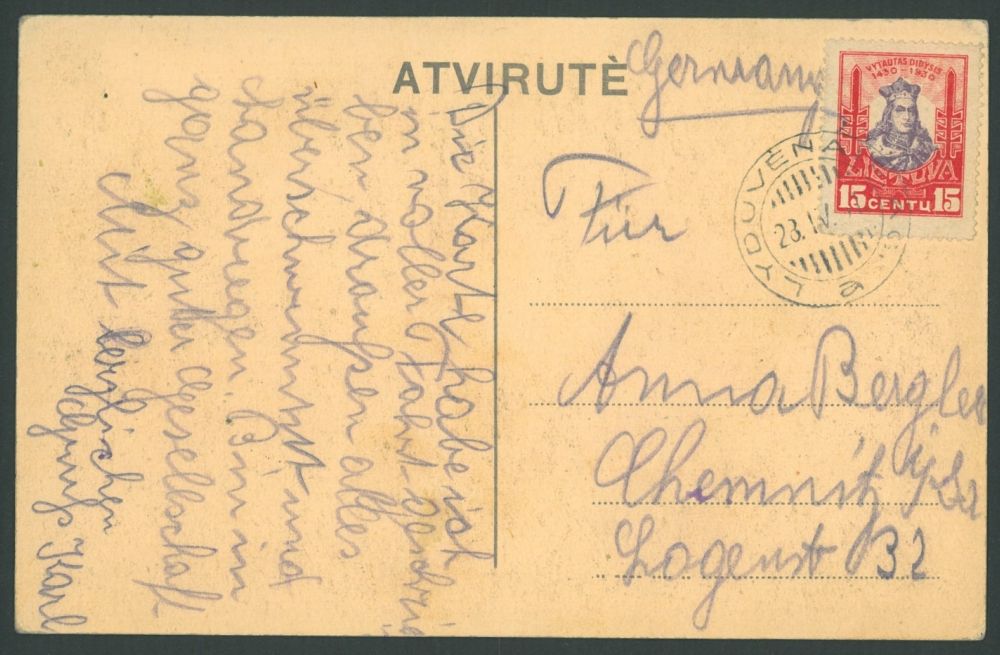 ATVIRUTÈ
Germany
VYTAUTAS DIDYSIS
1430-1930
LIETUVA
15 CENTŲ 15
LYDUVĖNAI
28. IV.
Für
Anna Bergler
Chemnitz
Logenstr 32
Die Karte habe ich
in voller Fahrt geschrie
ben draußen alles
überschwemmt und
Landwegen. Bin in
ganz guter Gesellschaft
Mit herzlichen
Karl